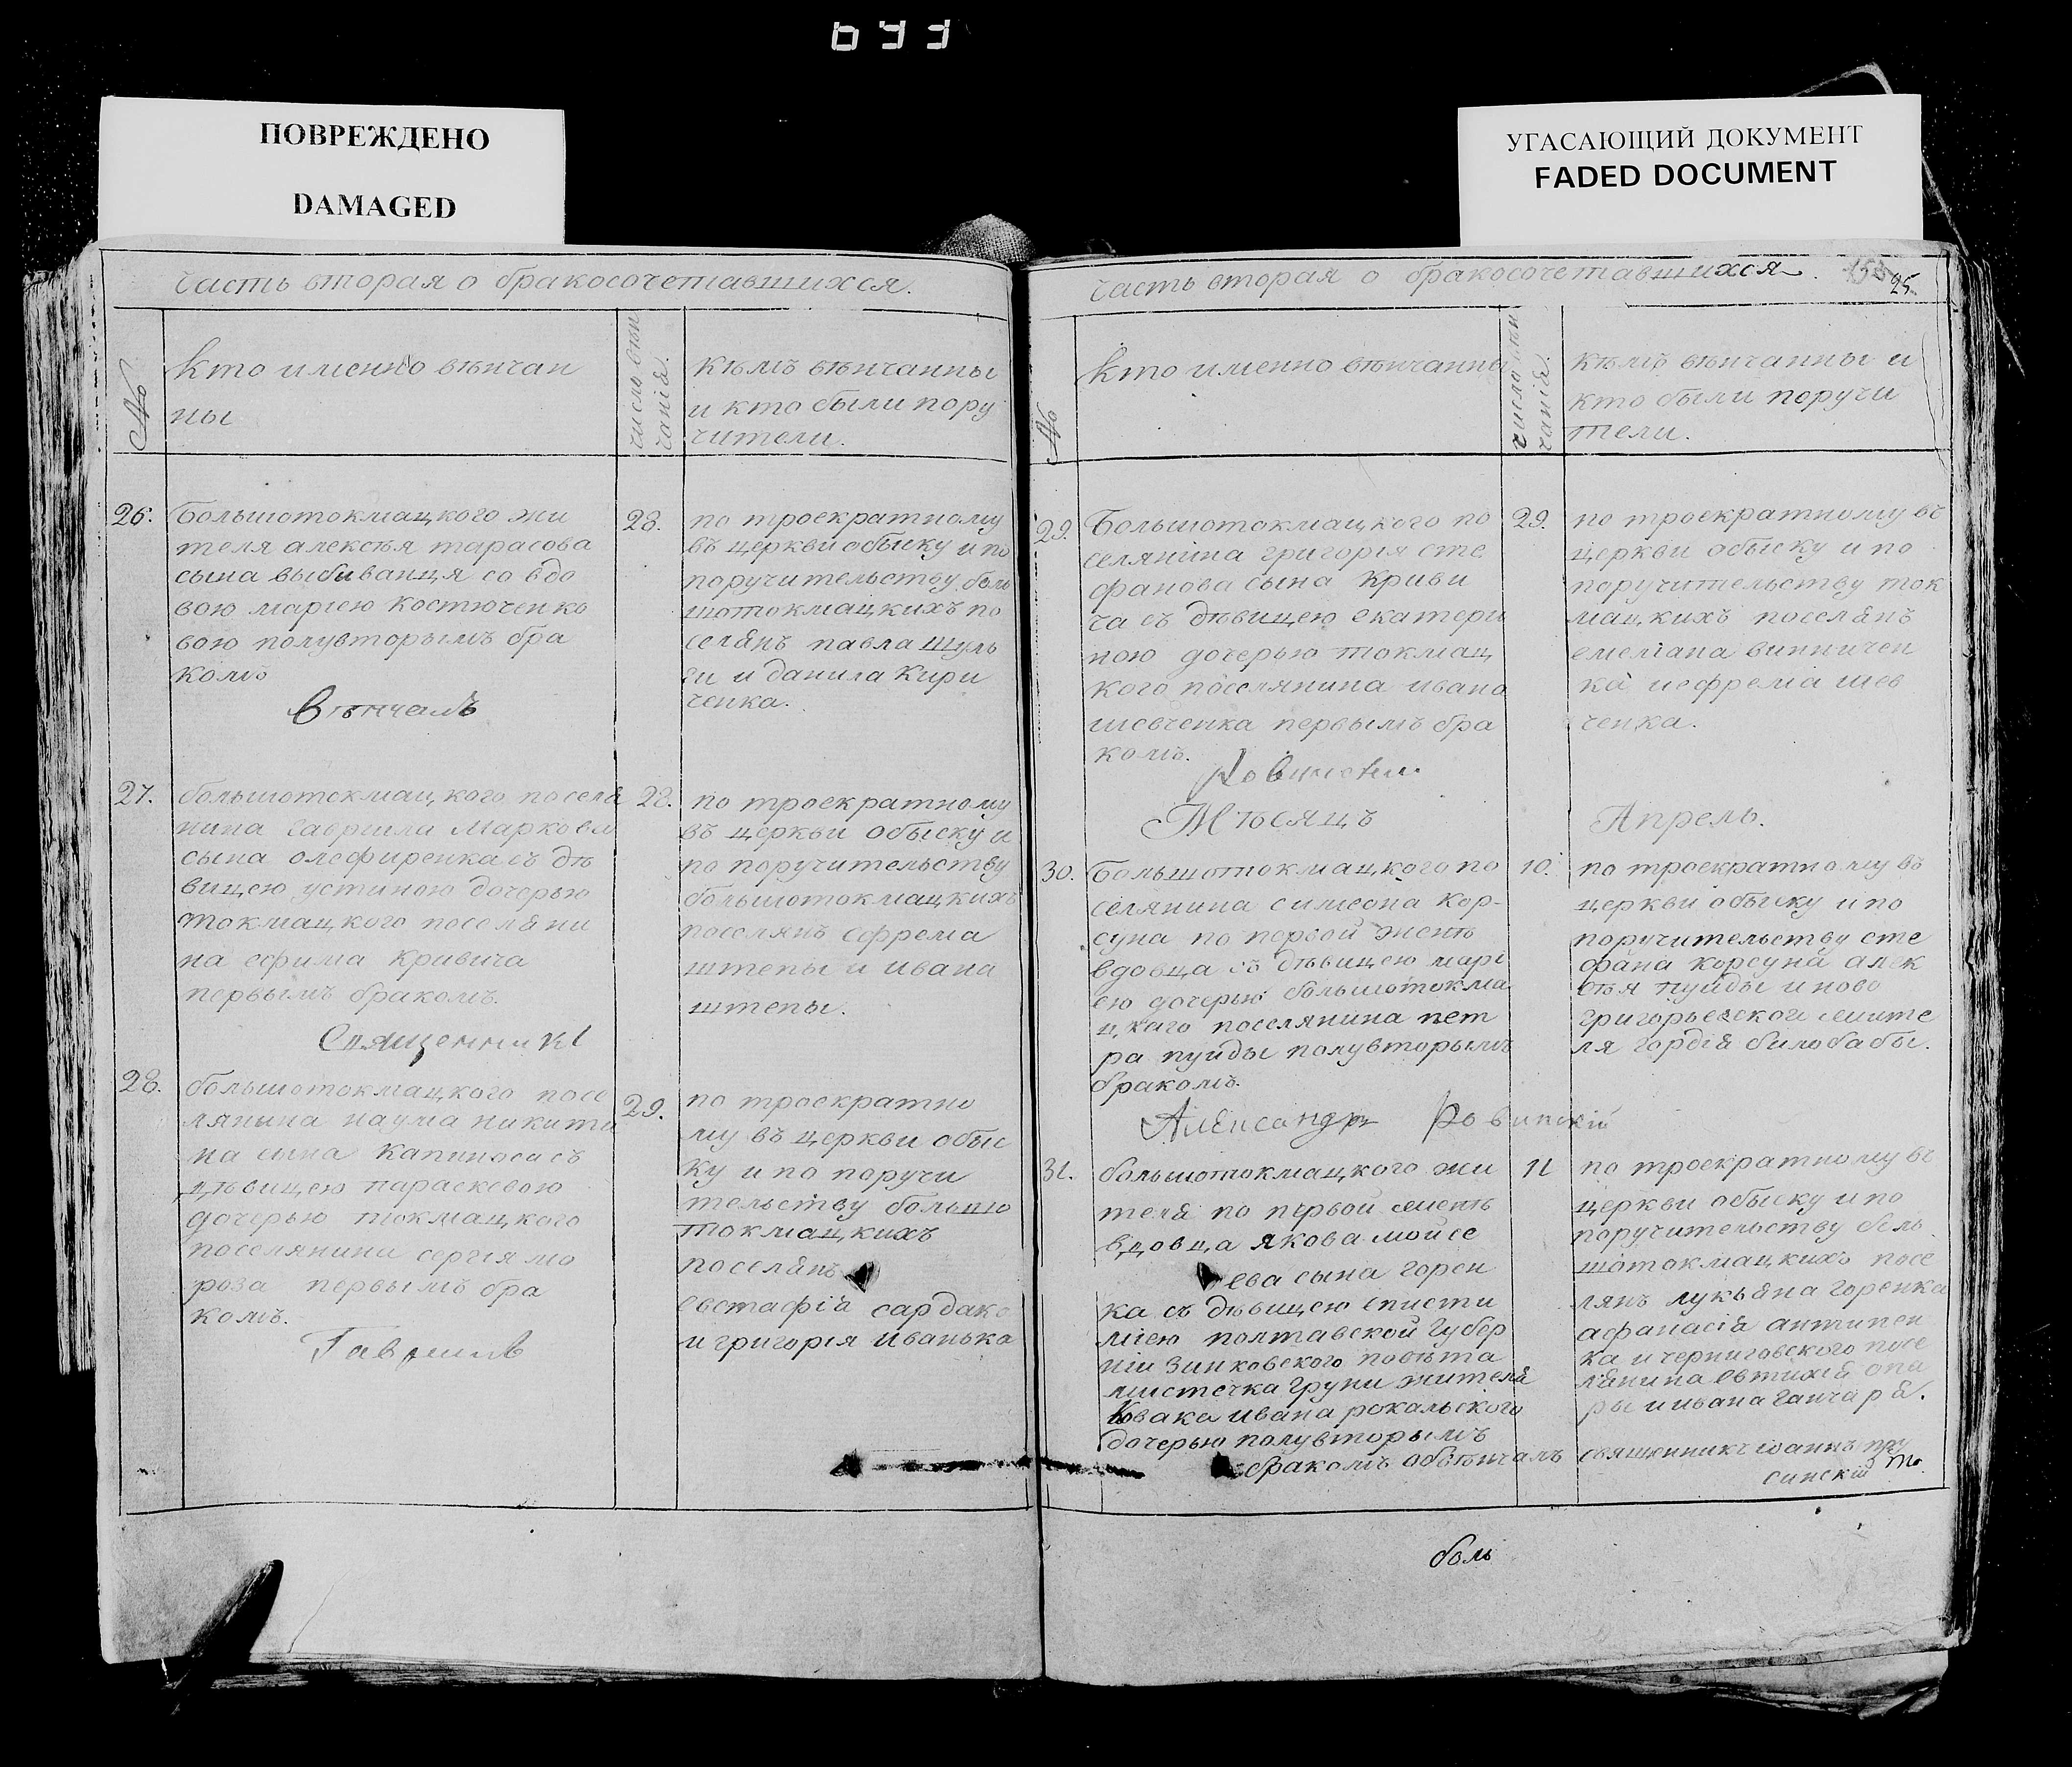 ПОВРЕЖДЕНО
DAMAGED
УГАСАЮЩИЙ ДОКУМЕНТ
FADED DOCUMENT
часть вторая о бракосочетавшихся.
№
кто именно вѣнчан
ны
число вѣн
чанія.
кѣмъ вѣнчанны
и кто были пору
чители.
26.
Большотокмацкого жи
теля алексѣя тарасова
сына выбиванця со вдо
вою маріею костюченко
вою полувторымъ бра
комъ
28.
по троекратному
въ церкви обыску и по
поручительству боль
шотокмацкихъ по
селянъ павла шуль
ги и данила кири
ченка.
Вѣнчалъ
27.
большотокмацкого поселя
нина гавриила Маркова
сына олефиренка съ дѣ
вицею устиною дочерью
токмацкого поселяни
на ефима кривича
первымъ бракомъ.
28.
по троекратному
въ церкви обыску и
по поручительству
большотокмацкихъ
поселянъ ефрема
штепы и ивана
штепы.
Священникъ
28.
большотокмацкого посе
лянина наума никити
на сина капиноса съ
дѣвицею параскевою
дочерью токмацкого
поселянина сергія мо
роза первымъ бра
комъ.
29.
по троекратно
му въ церкви обыс
ку и по поручи
тельству большо
токмацкихъ
поселянъ
евстафія сардако
и григорія иванька
Гавриилъ
часть вторая о бракосочетавшихся.
25.
№
кто именно вѣнчанны
число вѣн
чанія.
кѣмъ вѣнчанны и
кто были поручи
тели.
29.
Большотокмацкого по
селянина григорія сте
фанова сына Криви
ча съ дѣвицею екатери
ною дочерью токмац
кого поселянина ивана
шевченка первымъ бра
комъ.
29.
по троекратному въ
церкви обыску и по
поручительству ток
мацкихъ поселянъ
емеліана винничен
ка и ефрема шев
ченка.
Мѣсяцъ Апрель.
30.
Большотокмацкого по
селянина симеона кор-
суна по первой женѣ
вдовца съ дѣвицею марі
ею дочерью большотокма
цкаго поселянина пет
ра пуйды полувторымъ
бракомъ.
10.
по троекратному въ
церкви обыску и по
поручительству сте
фана корсуна алек
сѣя пуйды и ново
григорьевской жите
ля гордія билобабы.
Александръ Ровинскій
31.
большотокмацкого жи
теля по первой женѣ
вдовца якова мойсе
ева сына горен
ка съ дѣвицею еписти
міею полтавской губер
ніи зинковского повѣта
мистечка груни жителя
ивана рокальского
дочерью полувторымъ
бракомъ обвѣнчалъ
11
по троекратному въ
церкви обыску и по
поручительству боль
шотокмацкихъ посе
лянъ лукьяна горенка
афанасія антипен
ка и черниговского посе
лянина евтихія
и ивана ганчаря.
священникъ іоаннъ
боль